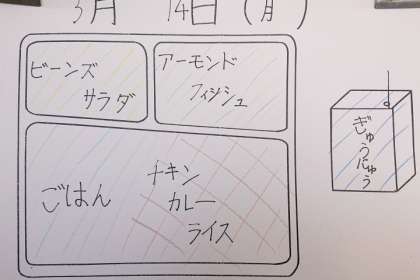 3月 14日 (月)
ビーンズ
サラダ
アーモンド
フィッシュ
ごはん
チキン
カレー
ライス
ぎゅうにゅう